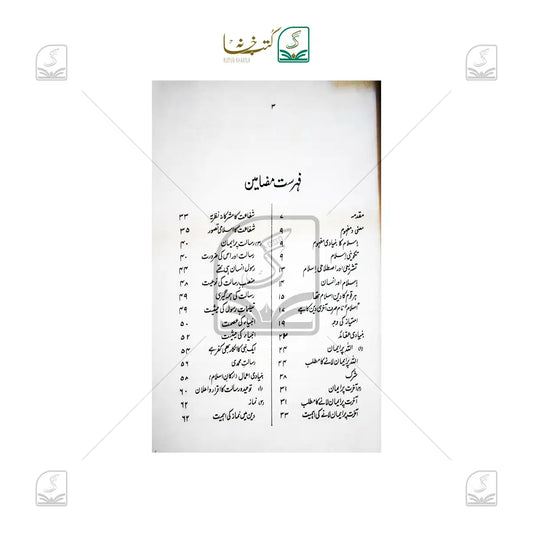 کتب خانہ
KUTUB KHANA
۳
فہرست مضامین
مقدمہ ۷
معنی و مفہوم ۹
اسلام کا بنیادی مفہوم ۹
تکوینی اسلام ۹
تشریعی اور اصطلاحی اسلام ۱۳
اسلام اور انسان ۱۴
ہر قوم کا دین اسلام تھا ۱۵
"اسلام" نام صرف آخری دین کا ہے ۱۷
امتیاز کی وجہ ۱۹
بنیادی عقائد
(۱) اللہ پر ایمان ۲۴
اللہ پر ایمان لانے کا مطلب ۲۴
شرک ۲۸
(۲) آخرت پر ایمان ۳۱
آخرت پر ایمان لانے کا مطلب ۳۱
آخرت پر ایمان لانے کی اہمیت ۳۳
شفاعت کا مشرکانہ نظریہ ۳۳
شفاعت کا اسلامی تصور ۳۵
(۳) رسالت پر ایمان ۴۰
رسالت اور اس کی ضرورت ۴۰
رسول انسان ہی تھے ۴۴
منصب رسالت کی نوعیت ۴۸
رسالت کی ہمہ گیری ۴۹
تعلیمات رسول کی حیثیت ۴۹
انبیاء کی عصمت ۵۰
انبیاء کی حیثیت ۵۲
ایک نبی کا انکار بھی کفر ہے ۵۴
رسالت محمدی ۵۶
بنیادی اعمال (ارکان اسلام) ۵۸
(۱) توحید و رسالت کا اقرار و اعلان ۶۰
(۲) نماز ۶۲
دین میں نماز کی اہمیت ۶۲